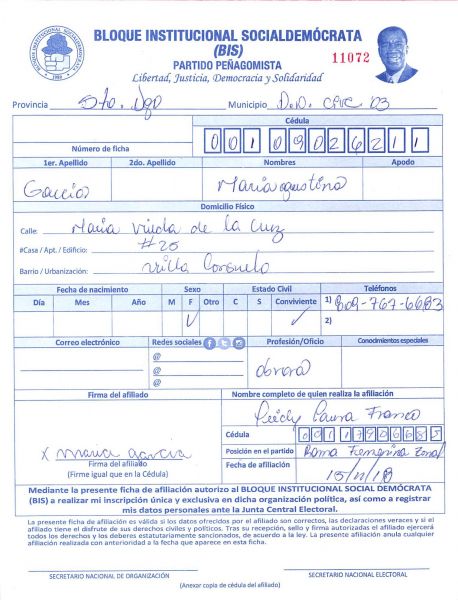 BLOQUE INSTITUCIONAL SOCIALDEMÓCRATA
(BIS)
PARTIDO PEÑAGOMISTA
11072
Libertad, Justicia, Democracia y Solidaridad
Provincia Sto. Dgo Municipio D.N. CIRC 03
Cédula
Número de ficha 001 0902621 1
1er. Apellido 2do. Apellido Nombres Apodo
García Maria agustina
Domicilio Físico
Calle: Maria Viuda de la Cruz
#Casa / Apt. / Edificio: #20
Barrio / Urbanización: Villa Consuelo
Fecha de nacimiento Sexo Estado Civil Teléfonos
Día Mes Año M F Otro C S Conviviente 1) 809-767-6683
2)
Correo electrónico Redes sociales Profesión/Oficio Conocimientos especiales
@
@ obrera
@
Firma del afiliado Nombre completo de quien realiza la afiliación
Laura Franco
Cédula
X maria garcia Posición en el partido Rama Femenina Zonal
Firma del afiliado
(Firme igual que en la Cédula) Fecha de afiliación 15/11/18
Mediante la presente ficha de afiliación autorizo al BLOQUE INSTITUCIONAL SOCIAL DEMÓCRATA
(BIS) a realizar mi inscripción única y exclusiva en dicha organización política, así como a registrar
mis datos personales ante la Junta Central Electoral.
La presente ficha de afiliación es válida si los datos ofrecidos por el afiliado son correctos, las declaraciones veraces y si el
afiliado tiene el disfrute de sus derechos civiles y políticos. Tras su recepción, sello y firma autorizada el afiliado ejercerá
todos los derechos y los deberes estatutariamente sancionados, de acuerdo a la ley. La presente afiliación anula cualquier
afiliación realizada con anterioridad a la fecha que aparece en esta ficha.
SECRETARIO NACIONAL DE ORGANIZACIÓN SECRETARIO NACIONAL ELECTORAL
(Anexar copia de cédula del afiliado)